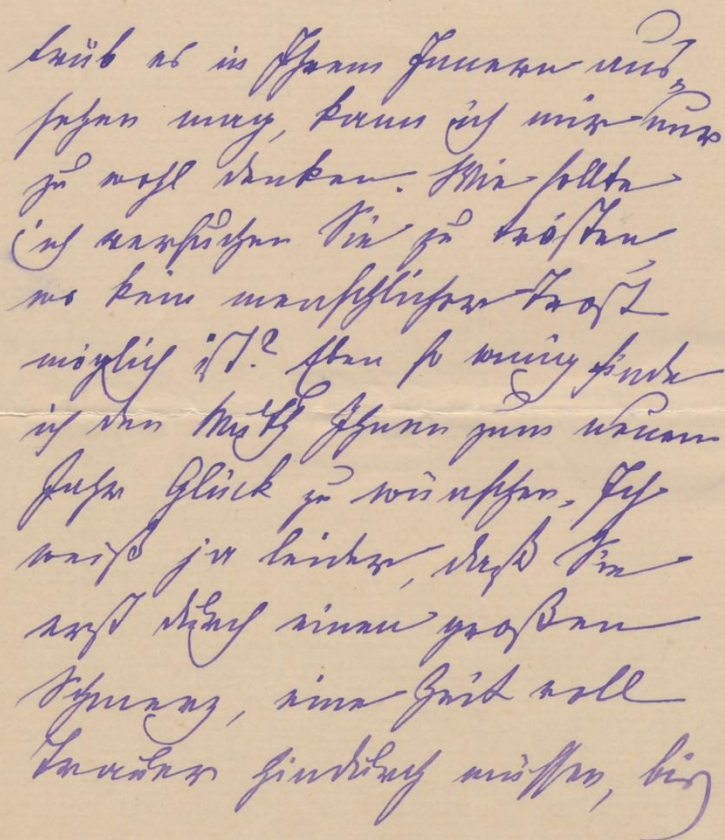 trüb es in Ihrem Innern aus-
sehen mag, kann ich mir nur
zu wohl denken. Wie sollte
ich versuchen Sie zu trösten,
wo kein menschlicher Trost
möglich ist? Eben so wenig finde
ich den Muth Ihnen zum neuen
Jahr Glück zu wünschen. Ich
weiß ja leider, daß Sie
erst durch einen großen
Schmerz, eine Zeit voll
Trauer hindurch müssen, bis